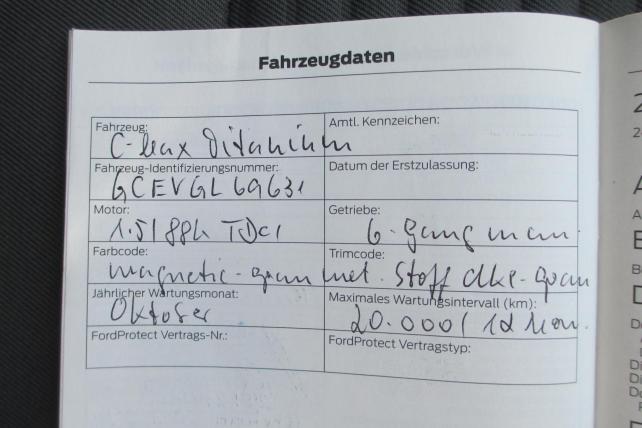 Fahrzeugdaten
Fahrzeug: Amtl. Kennzeichen:
C-Max Titanium
Fahrzeug-Identifizierungsnummer: Datum der Erstzulassung:
GCEVGL69631
Motor: Getriebe:
1.5/88h TDCI 6-gang man.
Farbcode: Trimcode:
magnetic-grau met. Stoff dkl-grau
Jährlicher Wartungsmonat: Maximales Wartungsintervall (km):
Oktober 20.000/12 Mon.
FordProtect Vertrags-Nr.: FordProtect Vertragstyp: